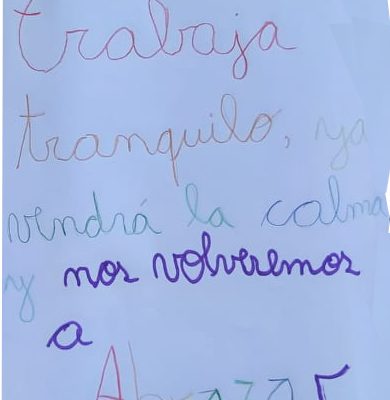 trabaja
tranquilo, ya
vendrá la calma
y nos volveremos
a
Abrazar